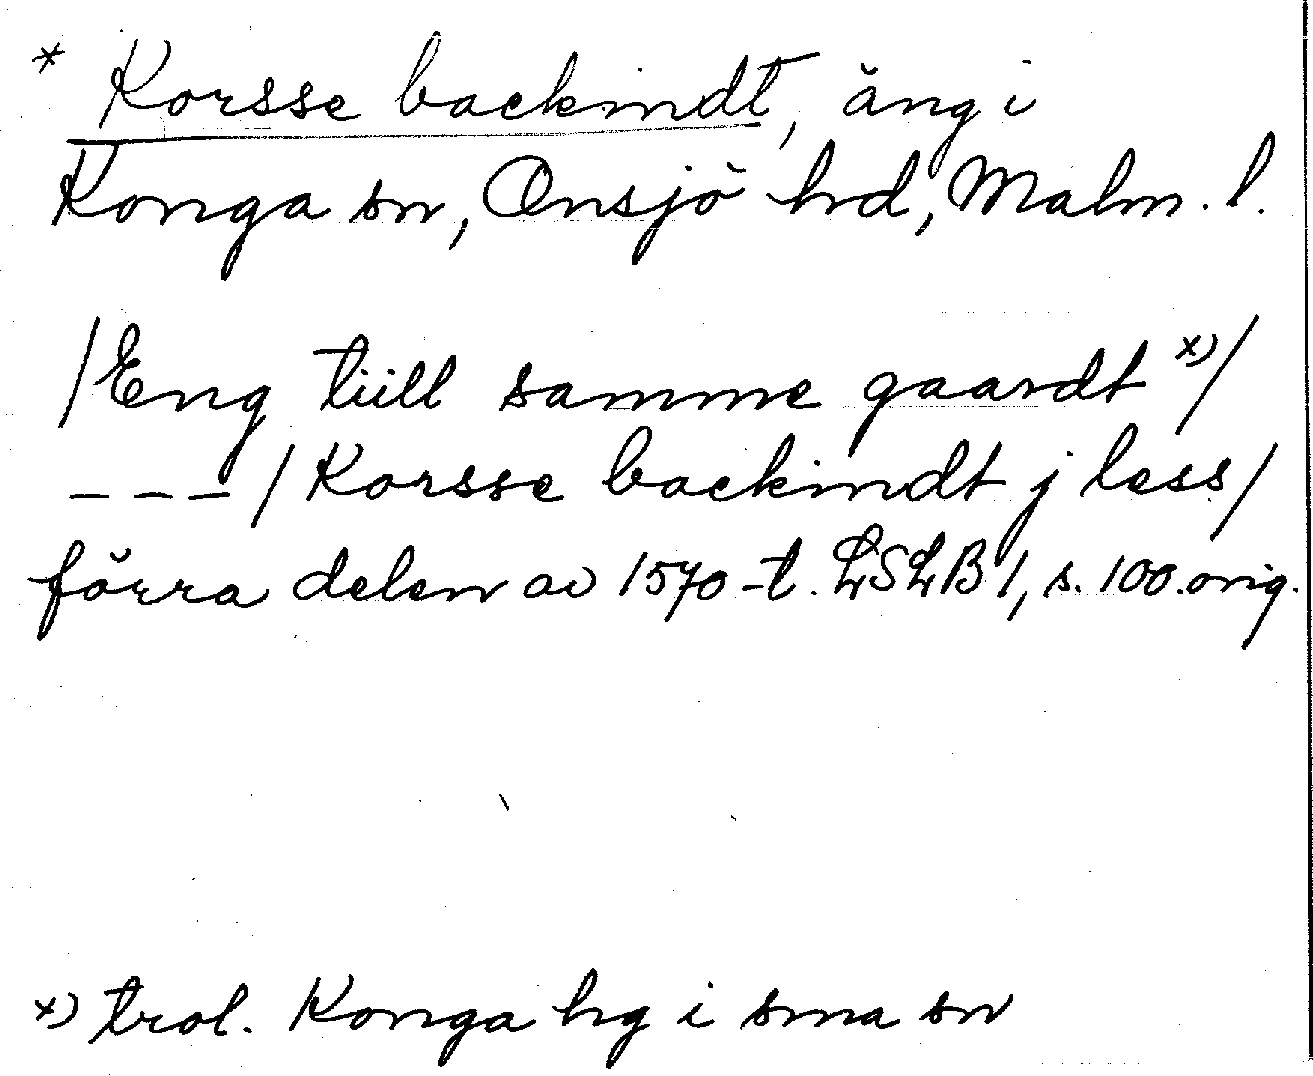 * Korsse backindt, äng i
Konga sn, Onsjö hd, Malm. l.
/Eng tiill samme gaardt x)/
--- / Korsse backindt j less/
förra delen av 1570-t. LSLB 1, s. 100. orig.
x) trol. Konga hg i sma sn